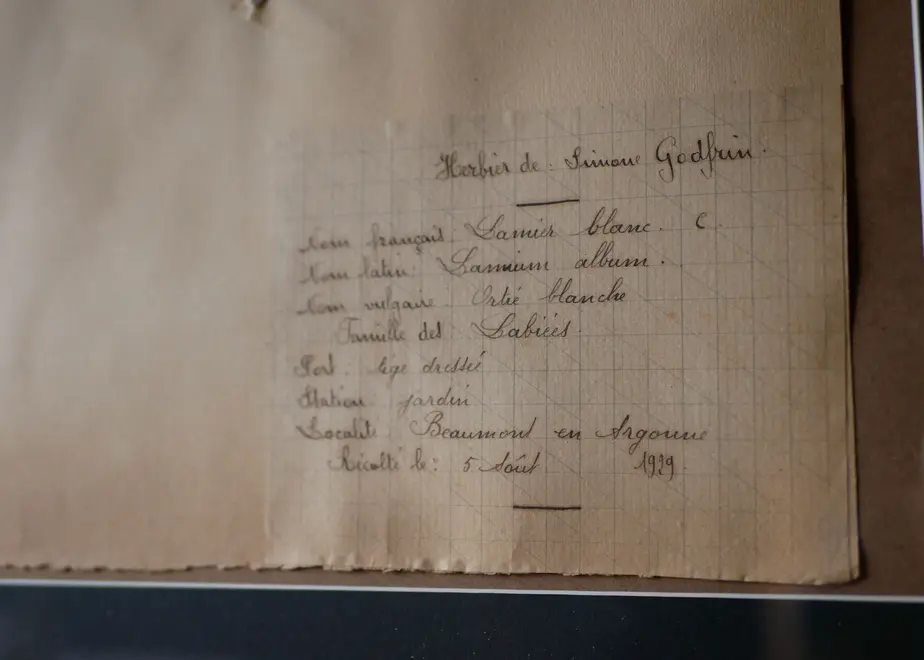 Herbier de : Simone Godfrin.
Nom français. Lamier blanc. C.
Nom latin. Lamium album.
Nom vulgaire. Ortie blanche
Famille des : Labiées.
Port. tige dressée
Station. jardin
Localité Beaumont en Argonne
Récolté le : 5 Août 1929